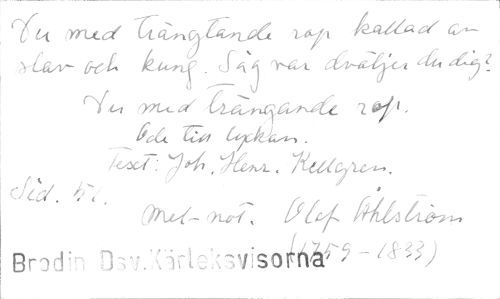 Du med trängtande rop kallad av
slav och kung. Säg var dväljes du dig?
Du med trängande rop.
Ode till lyckan.
Text: Joh. Henr. Kellgren.
Sid. 51.
Mel-not. Olof Åhlström
(1759-1833)
Brodin Dav. Kärleksvisorna